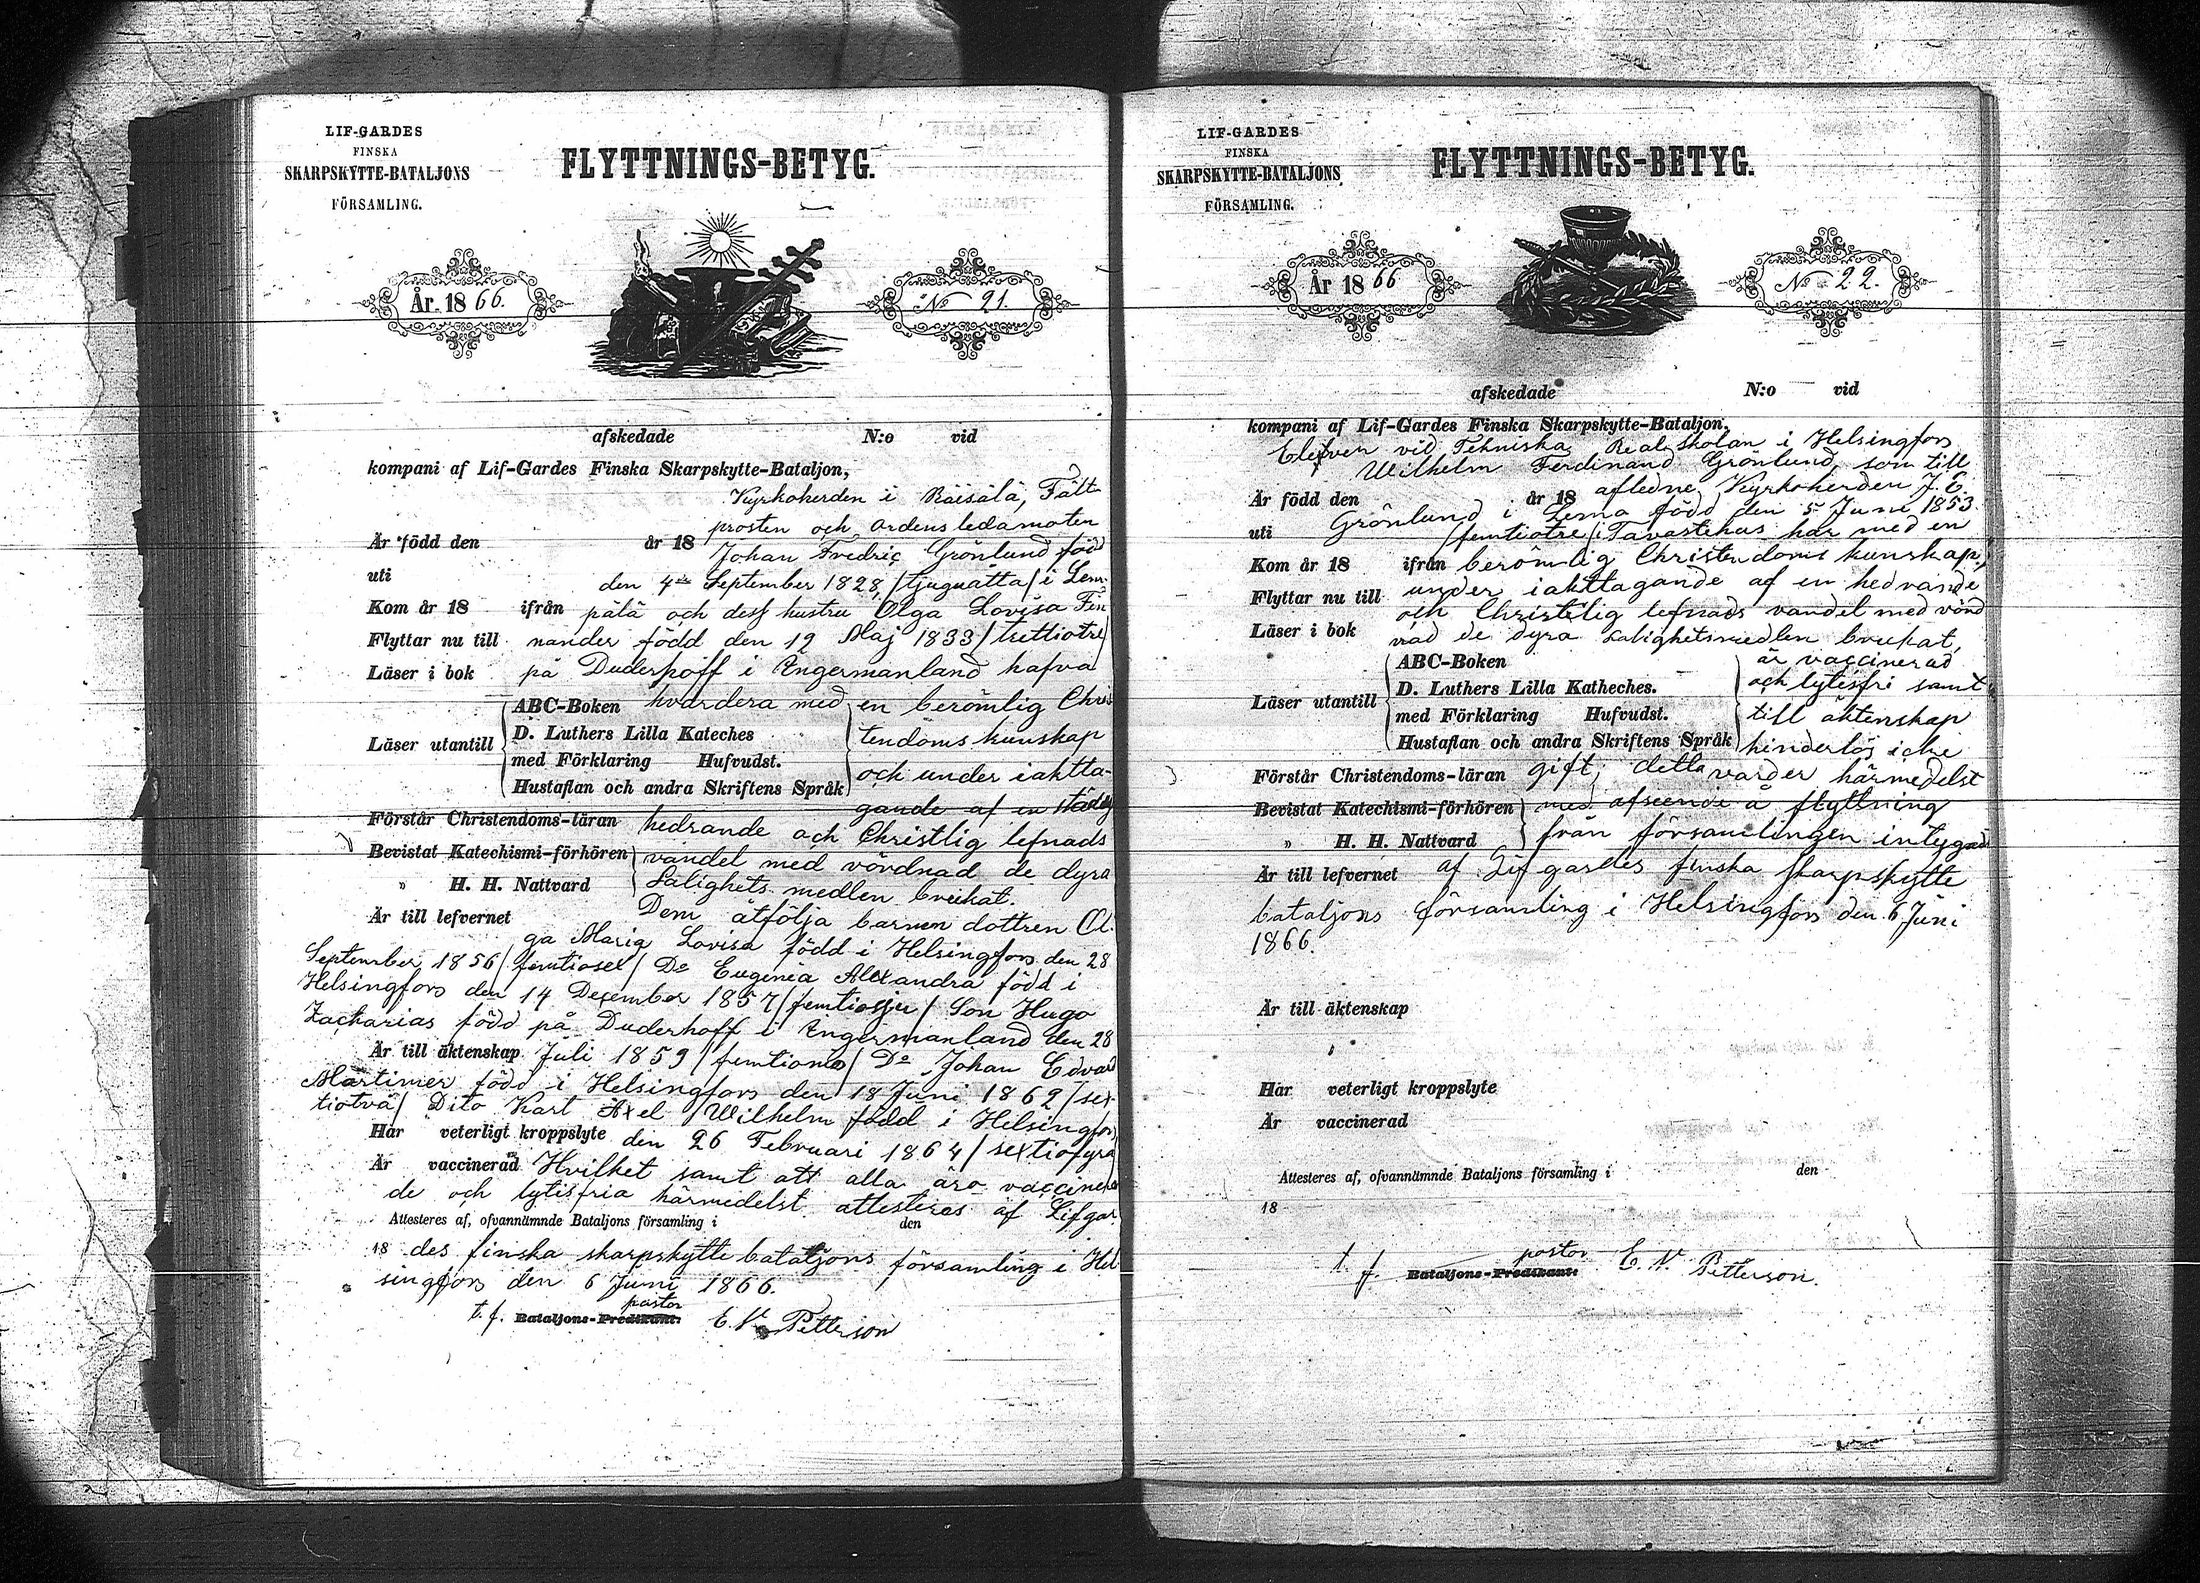 LIF-GARDES
FINSKA
SKARPSKYTTE-BATALJONS
FÖRSAMLING.
FLYTTNINGS-BETYG.
År 1866.
No 21.
afskedade N:o vid
kompani af Lif-Gardes Finska Skarpskytte-Bataljon,
Kyrkoherden i Räisälä, Fält-
prosten och ordens ledamoten
Är född den år 18 Johan Fredric Grönlund född
uti den 4de September 1828, /tjuguåtta/ i Lem-
Kom år 18 ifrån pälä och dess hustru Olga Lovisa Fin
Flyttar nu till nander född den 12 Maj 1833 /trettiotre/
Läser i bok på Duderhoff i Ingermanland hafva
ABC-Boken hvardera med en berömlig Chris
Läser utantill D. Luthers Lilla Kateches tendoms kunskap
med Förklaring Hufvudst.
Hustaflan och andra Skriftens Språk och under iaktta-
gande af en städse
Förstår Christendoms-läran hedrande och Christlig lefnads
Bevistat Katechismi-förhören vandel med vördnad de dyra
" H. H. Nattvard Salighets medlen brukat.
Är till lefvernet Dem åtfölja barnen dottren Ol-
ga Maria Lovisa född i Helsingfors den 28
September 1856 /femtiosex/ Do Eugenia Alexandra född i
Helsingfors den 14 December 1857 /femtiosju/ Son Hugo
Zacharias född på Duderhoff i Ingermanland den 28
Är till äktenskap Juli 1859 /femtionio/ Do Johan Edvard
Martimer född i Helsingfors den 18 Juni 1862 /sex-
tiotvå/ Dito Karl Axel Wilhelm född i Helsingfors
Har veterligt kroppslyte den 26 Februari 1864 /sextiofyra
Är vaccinerad Hvilket samt att alla äro vaccinera
de och lytisfria härmedelst attesteras af Lifgar-
Attesteres af, ofvannämnde Bataljons församling i den
18 des finska skarpskytte bataljons församling i Hel
singfors den 6 Juni 1866.
pastor
t. f. Bataljons-Predikant: E. V. Petterson
LIF-GARDES
FINSKA
SKARPSKYTTE-BATALJONS
FÖRSAMLING.
FLYTTNINGS-BETYG.
År 1866
No 22.
afskedade N:o vid
kompani af Lif-Gardes Finska Skarpskytte-Bataljon,
Elefven vid Tekniska Realskolan i Helsingfors
Wilhelm Ferdinand Grönlund, som till
Är född den år 18 afledne Kyrkoherden J. E.
Grönlund i Lerna född den 5 Juni 1853
uti /femtiotre/ i Tavastehus har med en
Kom år 18 ifrån berömlig Christendoms kunskap,
Flyttar nu till under iakttagande af en hedrande
och Christelig lefnads vandel med vörd
Läser i bok nad de dyra salighetsmedlen brukat,
ABC-Boken är vaccinerad
D. Luthers Lilla Katheches. och lytisfri samt
Läser utantill med Förklaring Hufvudst. till äktenskap
Hustaflan och andra Skriftens Språk hinderlös icke
Förstår Christendoms-läran gift; detta varder härmedelst
Bevistat Katechismi-förhören med afseende å flyttning
" H. H. Nattvard från församlingen intygadt
Är till lefvernet af Lifgardes finska skarpskytte
bataljons församling i Helsingfors den 6 Juni
1866.
Är till äktenskap
Har veterligt kroppslyte
Är vaccinerad
Attesteres af, ofvannämnde Bataljons församling i den
18
pastor
t. f. Bataljons-Predikant: E. V. Petterson.